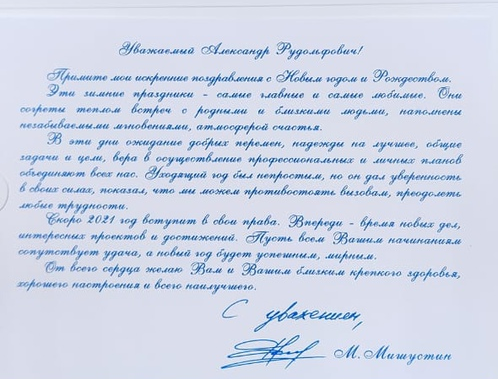 Уважаемый Александр Рудольфович!
Примите мои искренние поздравления с Новым годом и Рождеством.
Эти зимние праздники - самые главные и самые любимые. Они
согреты теплом встреч с родными и близкими людьми, наполнены
незабываемыми мгновениями, атмосферой счастья.
В эти дни ожидание добрых перемен, надежды на лучшее, общие
задачи и цели, вера в осуществление профессиональных и личных планов
объединяют всех нас. Уходящий год был непростым, но он дал уверенность
в своих силах, показал, что мы можем противостоять вызовам, преодолеть
любые трудности.
Скоро 2021 год вступит в свои права. Впереди - время новых дел,
интересных проектов и достижений. Пусть всем Вашим начинаниям
сопутствует удача, а новый год будет успешным, мирным.
От всего сердца желаю Вам и Вашим близким крепкого здоровья,
хорошего настроения и всего наилучшего.
С уважением,
М. Мишустин